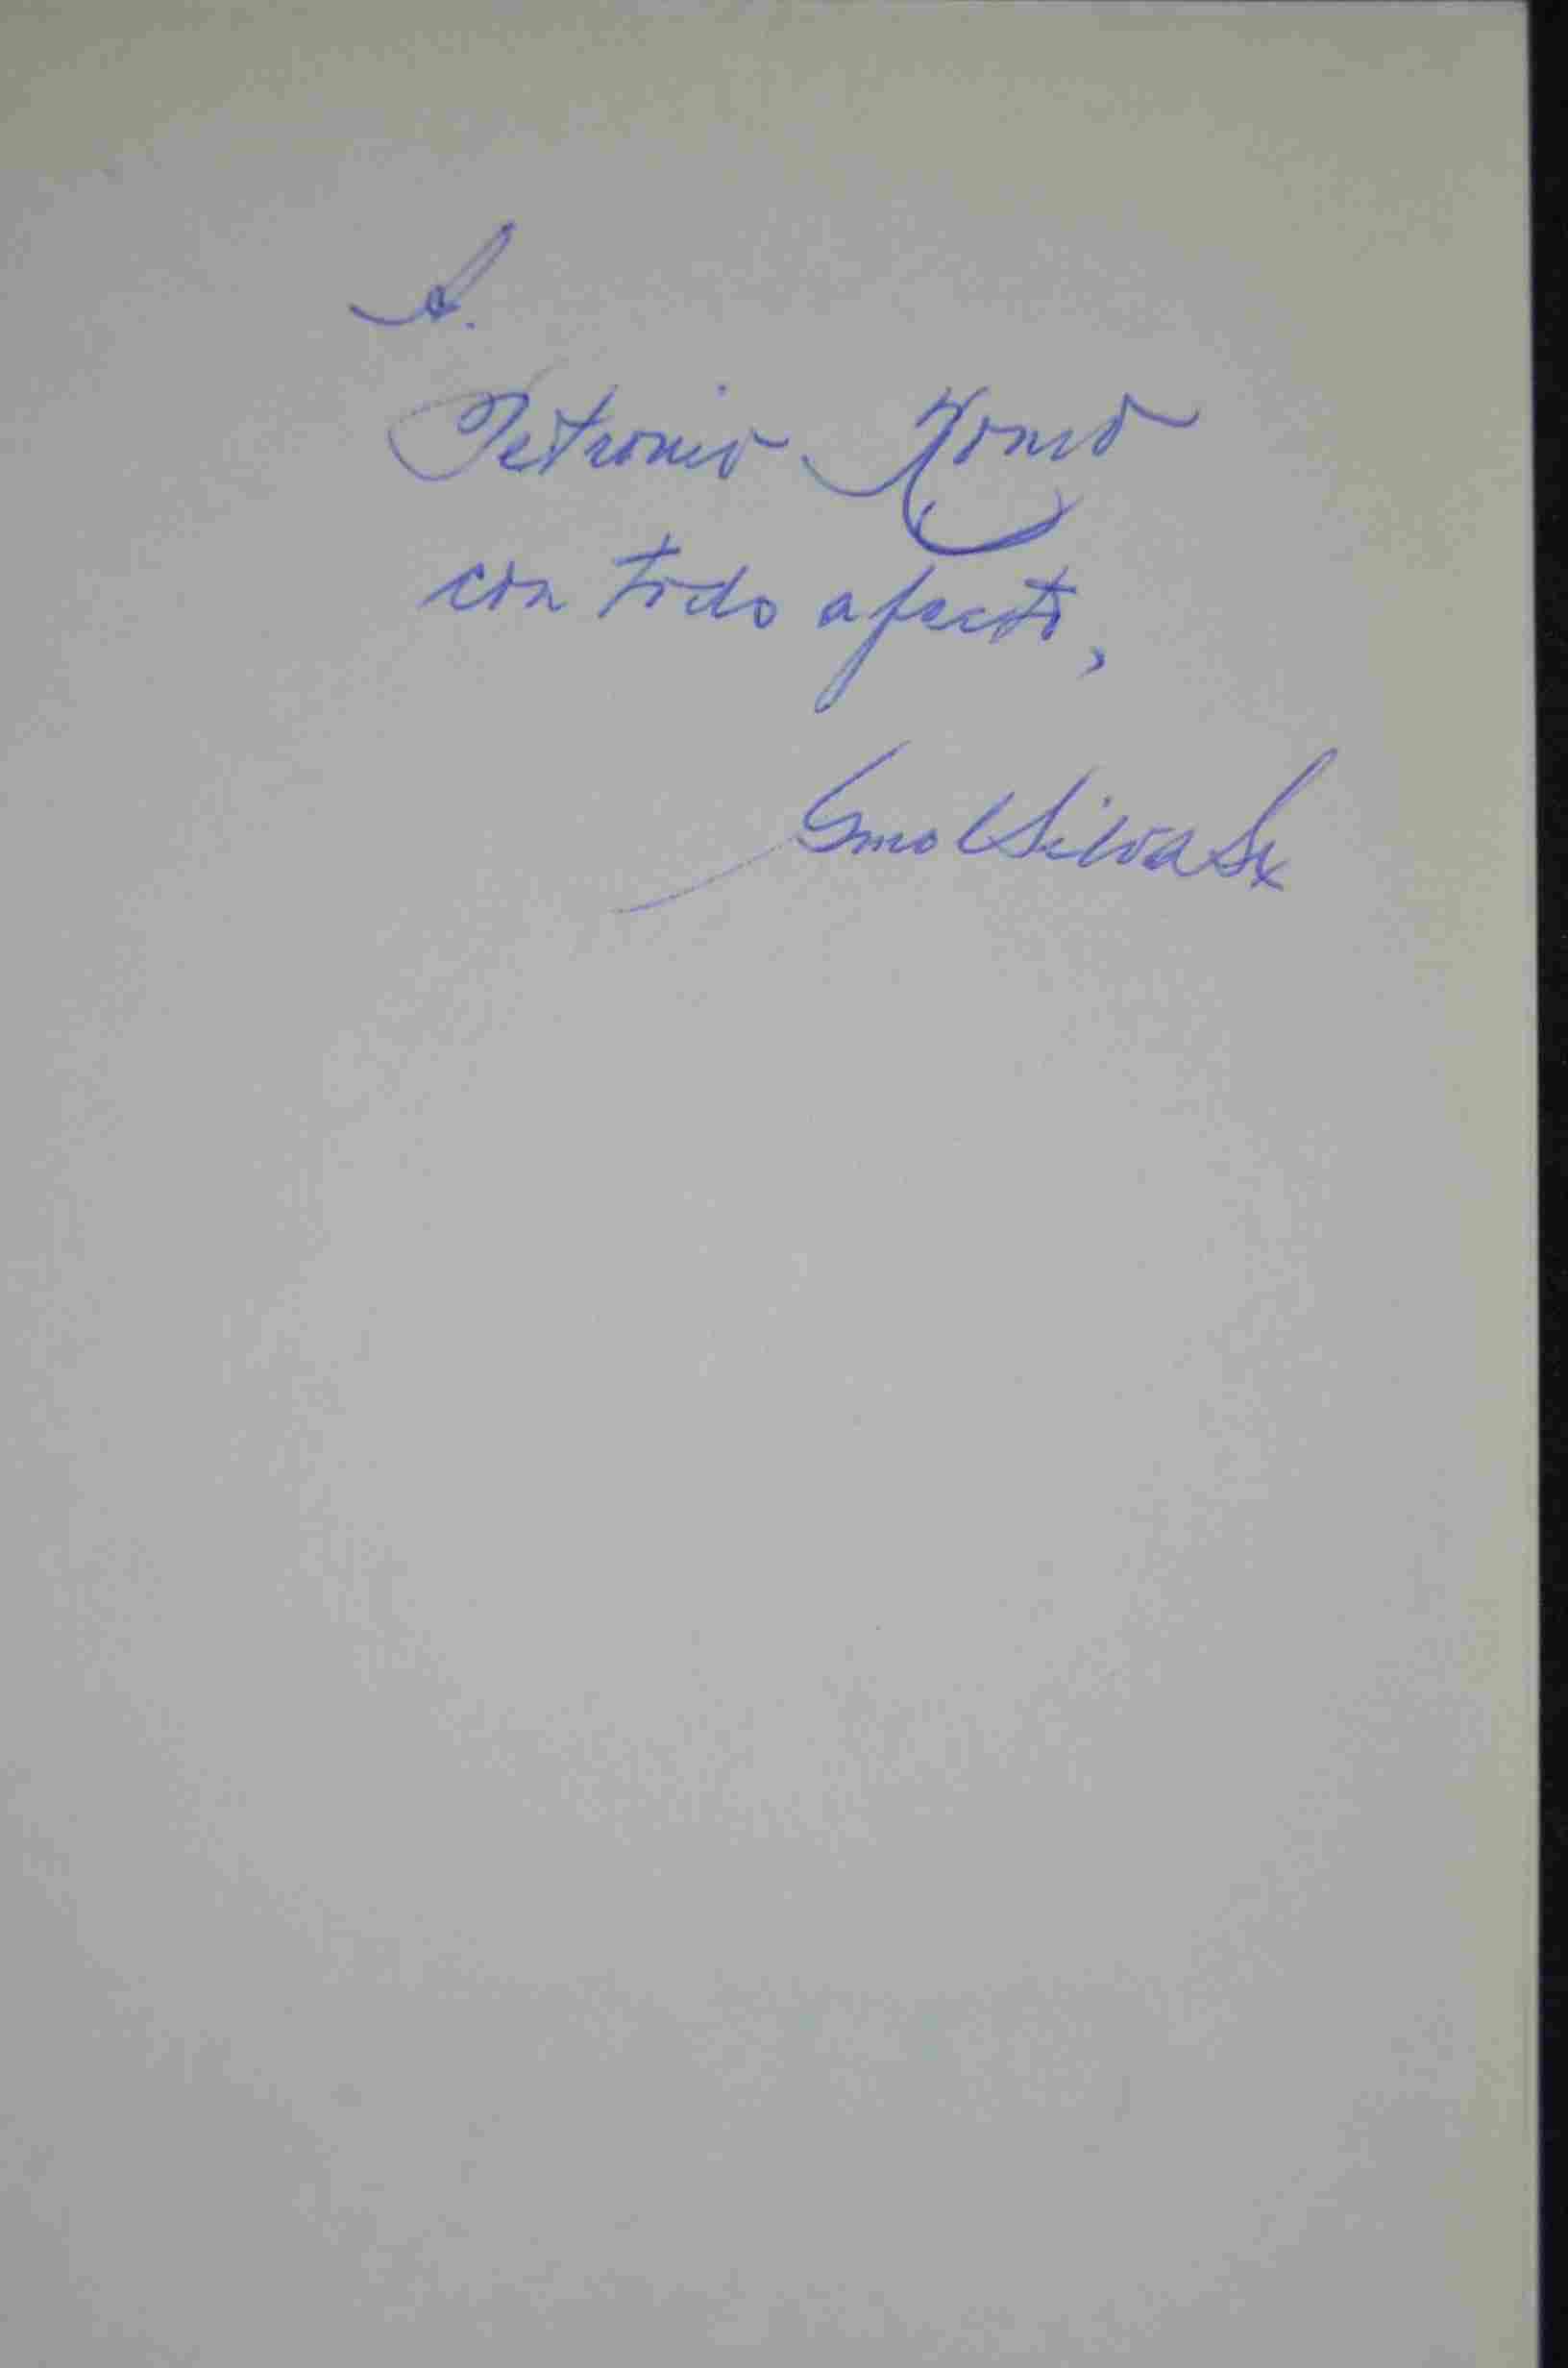 A.
Petronio Romo
con todo afecto,
Gmo C Silva S